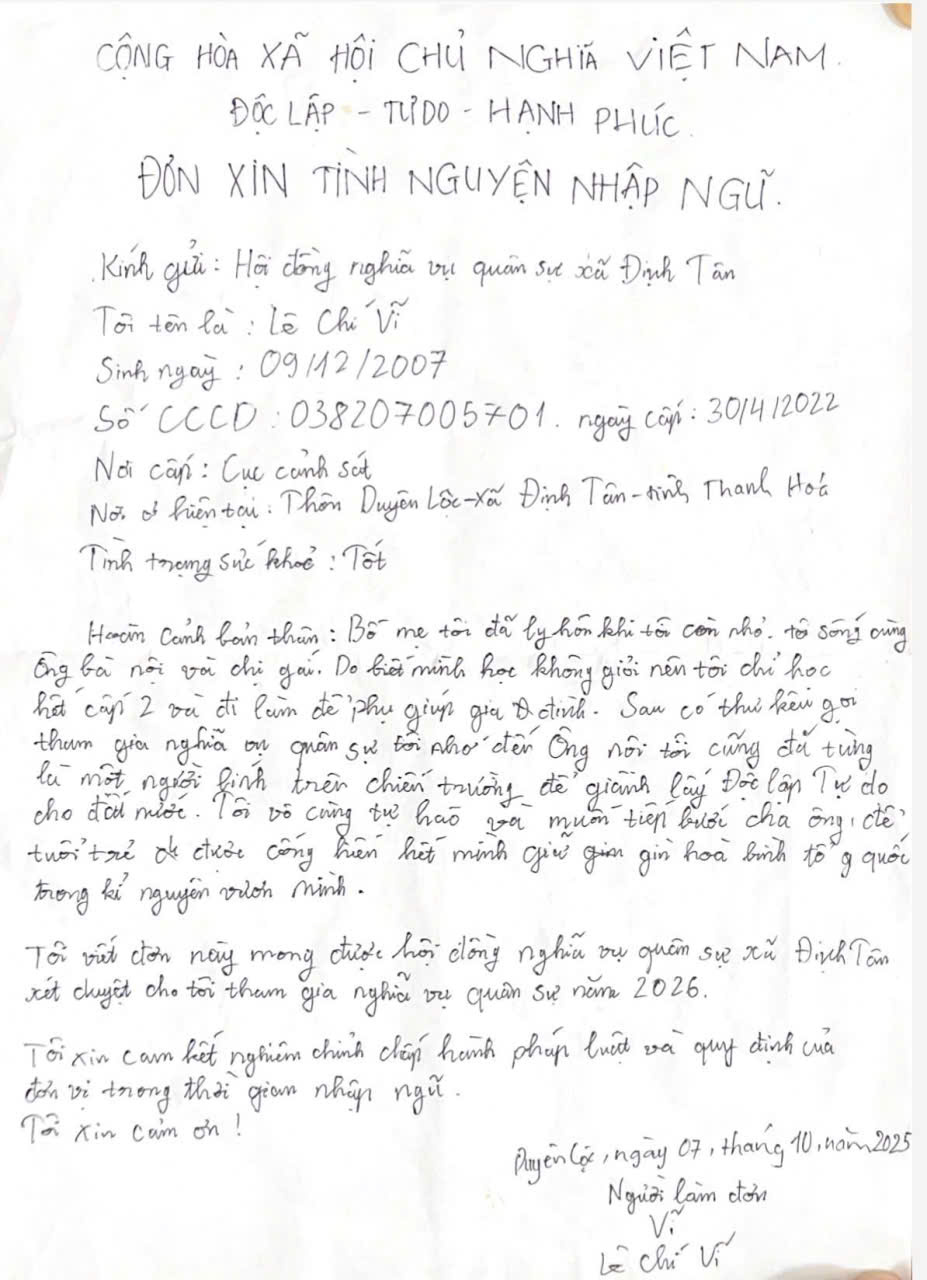 CỘNG HÒA XÃ HỘI CHỦ NGHĨA VIỆT NAM.
ĐỘC LẬP - TỰ DO - HẠNH PHÚC.
ĐƠN XIN TÌNH NGUYỆN NHẬP NGŨ.
Kính gửi: Hội đồng nghĩa vụ quân sự xã Định Tân
Tôi tên là: Lê Chí Vĩ
Sinh ngày: 09/12/2007
Số CCCD: 038207005701. ngày cấp: 30/4/2022
Nơi cấp: Cục cảnh sát
Nơi ở hiện tại: Thôn Duyên Lộc-xã Định Tân-tỉnh Thanh Hoá
Tình trạng sức khoẻ: Tốt
Hoàn cảnh bản thân: Bố mẹ tôi đã ly hôn khi tôi còn nhỏ. tôi sống cùng
ông bà nội và chị gái. Do biết mình học không giỏi nên tôi chỉ học
hết cấp 2 và đi làm để phụ giúp gia đình. Sau có thư kêu gọi
tham gia nghĩa vụ quân sự tôi nhớ đến Ông nôi tôi cũng đã từng
là một người lính trên chiến trường để giành lấy Độc lập Tự do
cho đất nước. Tôi vô cùng tự hào và muốn tiếp bước cha ông, để
tuổi trẻ được cống hiến hết mình giữ gìn hoà bình tổ quốc
trong kỉ nguyên vươn mình.
Tôi viết đơn này mong được hội đồng nghĩa vụ quân sự xã Định Tân
xét duyệt cho tôi tham gia nghĩa vụ quân sự năm 2026.
Tôi xin cam kết nghiêm chỉnh chấp hành pháp luật và quy định của
đơn vị trong thời gian nhập ngũ.
Tôi xin cảm ơn!
Duyên Lộc, ngày 07, tháng 10, năm 2025
Người làm đơn
Vĩ
Lê Chí Vĩ